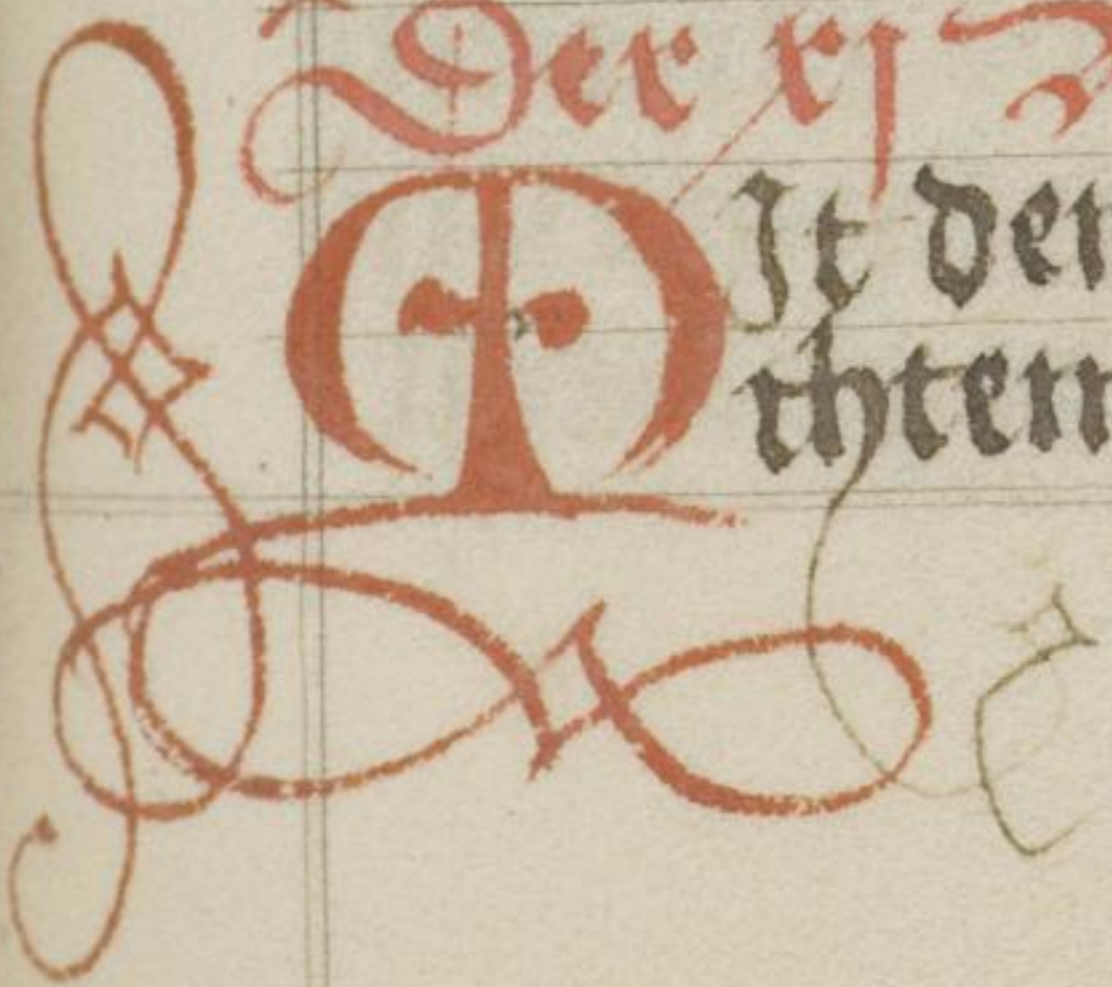 Der xj
MIt den
chten